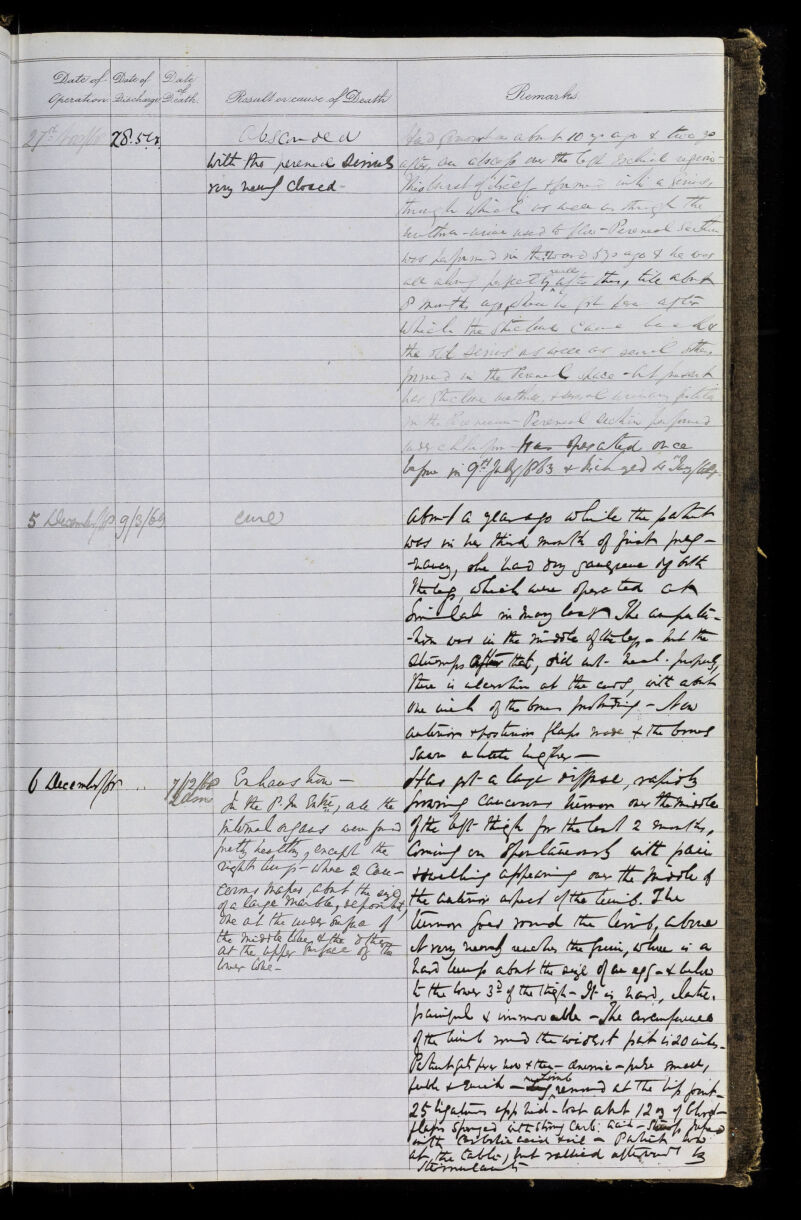 Date of Operation
Date of Discharge
Date of Death
Result or cause of Death
Remarks
28.5.69
Absconded
with the perineal Sinus
very nearly closed -
Had gonorrhoea about 10 yrs ago & two yrs
after, an abscess over the left ischial region -
This burst of itself & formed into a sinus,
through which as well as through the
urethra - urine used to flow - Perineal Section
was performed in the ward 5 yrs ago & he was
all along perfectly well after this, till about
8 months ago when he got fever after
which the stricture came back &
the old sinus as well as several others
formed in the Perineal space - at present
has stricture urethra, & several urinary fistulae
in the Perineum - Perineal Section performed
under chlorofm - Has operated once
before in 9th July/1863 & discharged
5 December/68
9/3/69
cure
About a year ago while the patient
was in her third month of first preg-
-nancy, she had dry gangrene of both
the legs, which were operated at
in May last. The amputa-
-tion was in the middle of the legs - but the
stumps after that, did not heal properly,
There is ulceration at the ends, with about
one inch of the bones protruding - New
anterior & posterior flaps made & the bones
sawn a little higher -
6 December/68
..
7/12/68
2 am
Exhaustion -
In the P. M. Extn, all the
internal organs were found
pretty healthy, except the
right lung - where 2 Can-
cerous masses, about the size
of a large marble, deposited,
one at the under surface of
the middle lobe & the other
at the upper surface of the
lower lobe -
Has got a large diffuse, rapidly
growing cancerous tumor over the middle
of the left thigh for the last 2 months,
coming on spontaneously with pain
& swelling appearing over the middle of
the anterior aspect of the limb. The
tumor goes round the limb, above
it very nearly reaches the groin, where is a
hard lump about the size of an egg - & below
to the lower 3d of the thigh - It is hard, elastic,
painful & immovable - The circumference
of the limb round the widest part is 20 inches -
Patient gets fever now & then - anemic - pulse small,
feeble & quick - limb removed at the hip joint -
25 ligatures applied - lost about 12 oz of blood -
flaps sponged with strong carb: acid -
with Carbolic acid & oil - Patient
at the table, but rallied afterwards by
stimulants